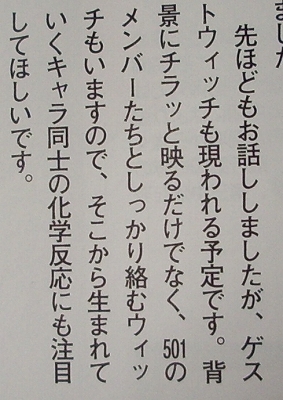 ました
先ほどもお話ししましたが、ゲス
トウィッチも現われる予定です。背
景にチラッと映るだけでなく、501の
メンバーたちとしっかり絡むウィッ
チもいますので、そこから生まれて
いくキャラ同士の化学反応にも注目
してほしいです。